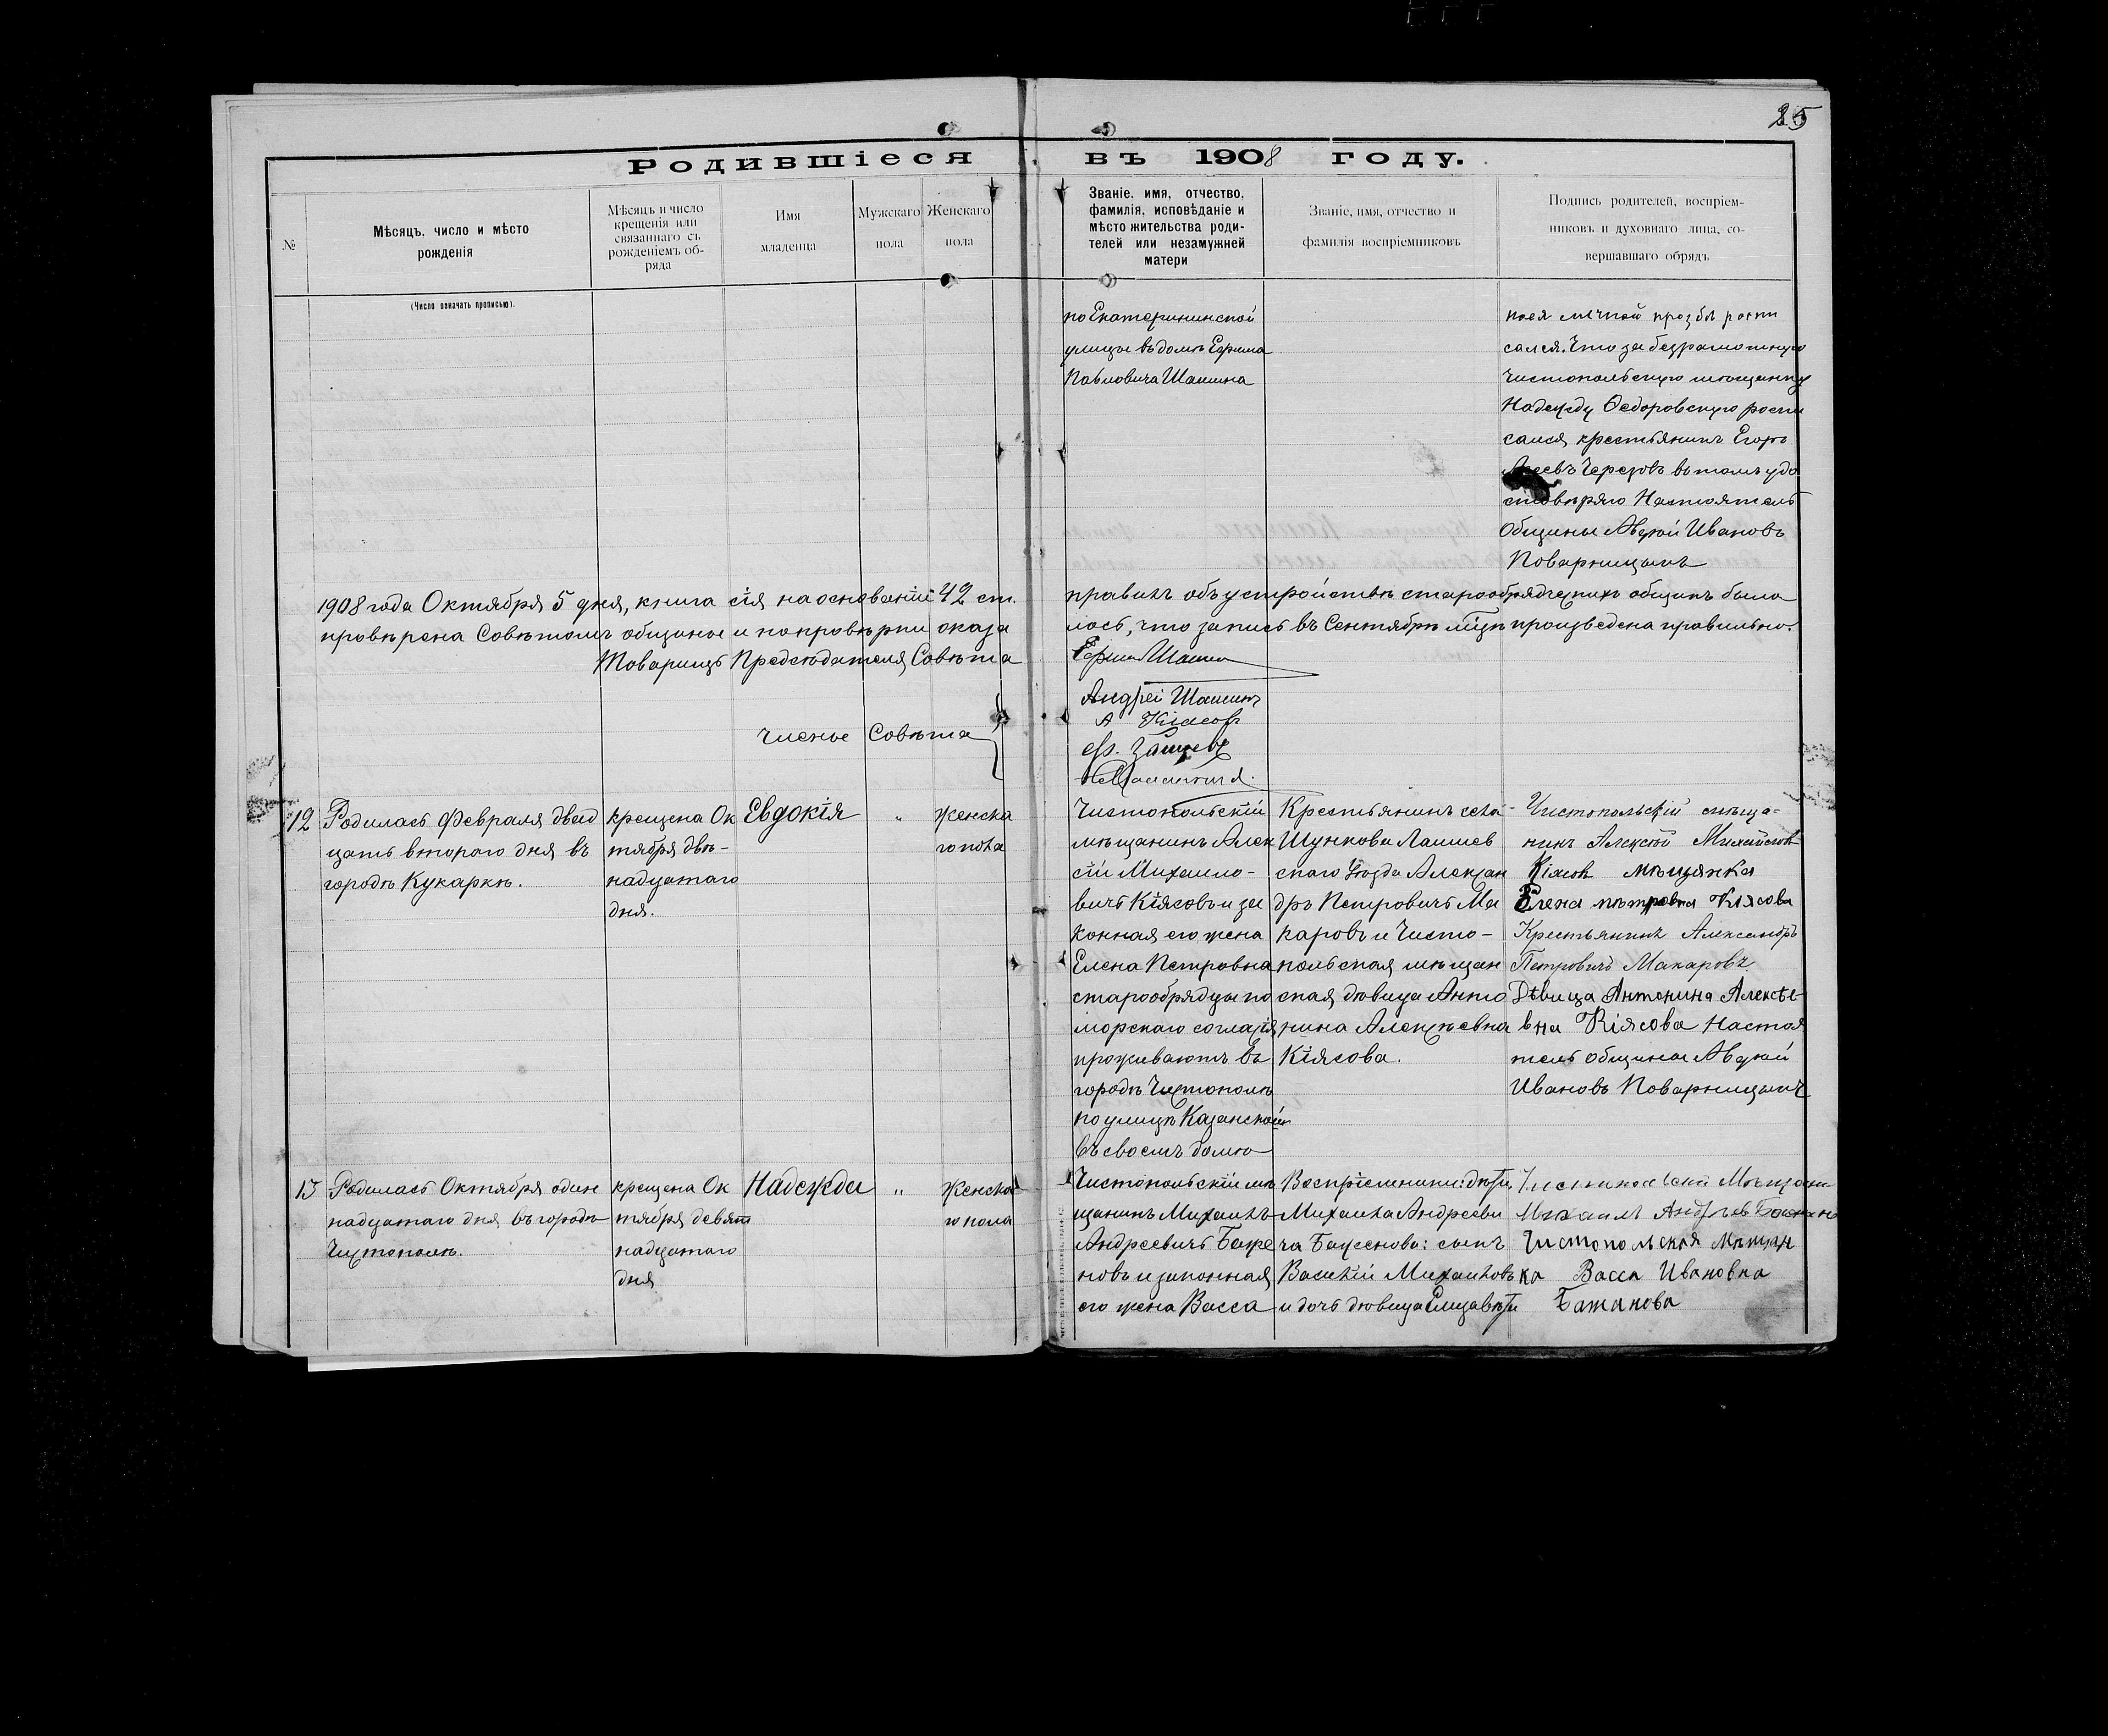 25
Родившіеся въ 1908 году.
№
Мѣсяцъ, число и мѣсто
рожденія
Мѣсяцъ и число
крещенія или
связаннаго съ
рожденіемъ об-
ряда
Имя
младенца
Мужскаго
пола
Женскаго
пола
Званіе, имя, отчество,
фамилія, исповѣданіе и
мѣсто жительства роди-
телей или незамужней
матери
Званіе, имя, отчество и
фамилія воспріемниковъ
Подпись родителей, воспріем-
никовъ и духовнаго лица, со-
вершавшаго обрядъ
(Число означать прописью).
по Екатерининской
улицы въ домѣ Ефима
Павловича Шашина
личной прозбѣ роспи
сался. Что за безграмотную
Чистопольскую мѣщанку
Надежду Ѳедоровскую роспи
сался крестьянинъ Егоръ
въ томъ удо
стовѣряю Настоятель
Общины Авдѣй Ивановъ
Поварницынъ
1908 года Октября 5 дня, книга сія на основаніи 42 ст.
правилъ объ устройствѣ старообрядческихъ общинъ была
провѣрена Совѣтомъ общины и по провѣрки оказа
лось, что запись въ Сентябрѣ мцѣ произведена правильно.
Товарищъ Предсѣдателя Совѣта
Ефим Шашин
Члены Совѣта
Андрей Шашинъ
А Кіясовъ
12
Родилась Февраля двад
цать второго дня въ
городѣ Кукаркѣ.
крещена Ок
тября двѣ-
надцатаго
дня.
Евдокія
„
Женска
го пола
Чистопольскій
мѣщанинъ Алек
сѣй Михаило-
вичъ Кіясовъ и за
конная его жена
Елена Петровна
старообрядцы по
морскаго согласія
проживаютъ въ
городѣ Чистополѣ
по улицѣ Казанской
въ своемъ домѣ
Крестьянинъ села
Шункова Лаишев
скаго Уѣзда Алексан
дръ Петровичъ Ма
каровъ и Чисто-
польская мѣщан
ская дѣвица Анто
нина Алексѣевна
Кіясова.
Чистопольскій мѣща-
нинъ Алексѣй Михайлов
Кіясов мѣщянка
Елена петровна Кіясова
Крестьянинъ Александръ
Петровичъ Макаровъ
Дѣвица Антонина Алексѣе-
вна Кіясова Настоя
тель общины Авдѣй
Ивановъ Поварницынъ
13
Родилась Октября один
надцатаго дня въ городѣ
Чистополѣ.
крещена Ок
тября девят
надцатаго
дня
Надежда
„
Женска
го пола
Чистопольскій мѣ
щанинъ Михаилъ
Андреевичъ Баже
новъ и законная
его жена Васса
Воспріемники: дѣти
Михаила Андрееви
ча Баженова: сынъ
Василій Михаиловъ
и дочь дѣвица Елизавѣти
Чистопольскій Мѣщани
Михаилъ Андрѣев Бажен
Чистопольская Мѣщан
ка Васса Ивановна
Бажанова